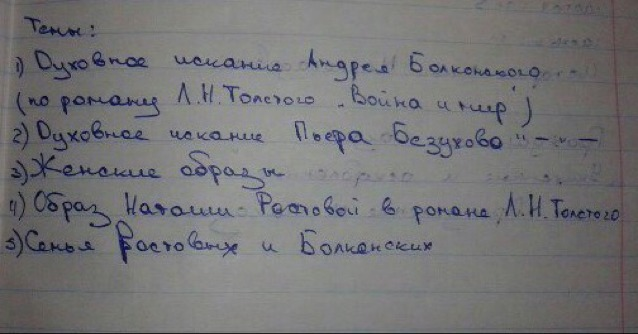 Темы:
1) Духовное искание Андрея Болконского
(по роману Л.Н.Толстого „Война и мир")
2) Духовное искание Пьера Безухова "— „ —
3) Женские образы
4) Образ Наташи Ростовой в романе Л.Н.Толстого
5) Семья Ростовых и Болконских